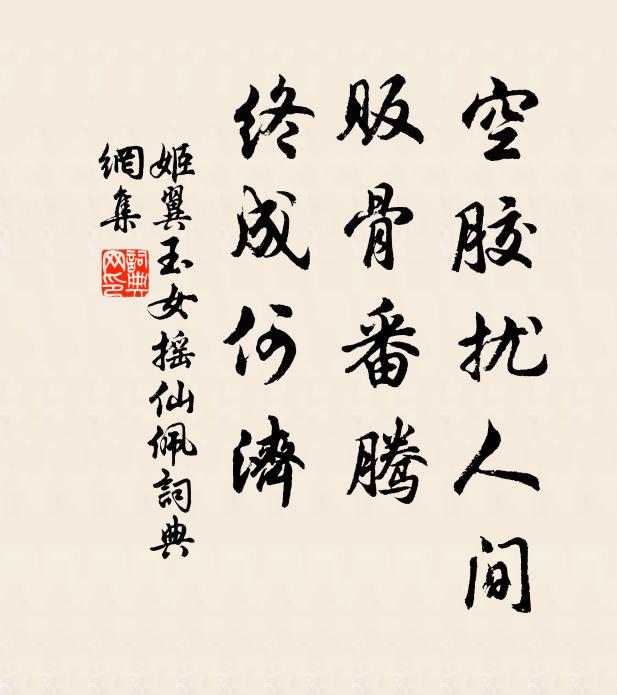 空胶扰人间
贩骨番腾
终成何濟
姬翼玉女摇仙佩詞典
網集
詞典
网印